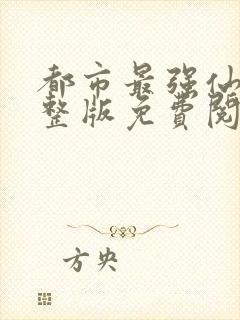 都市最强仙
整版免費閱
方央